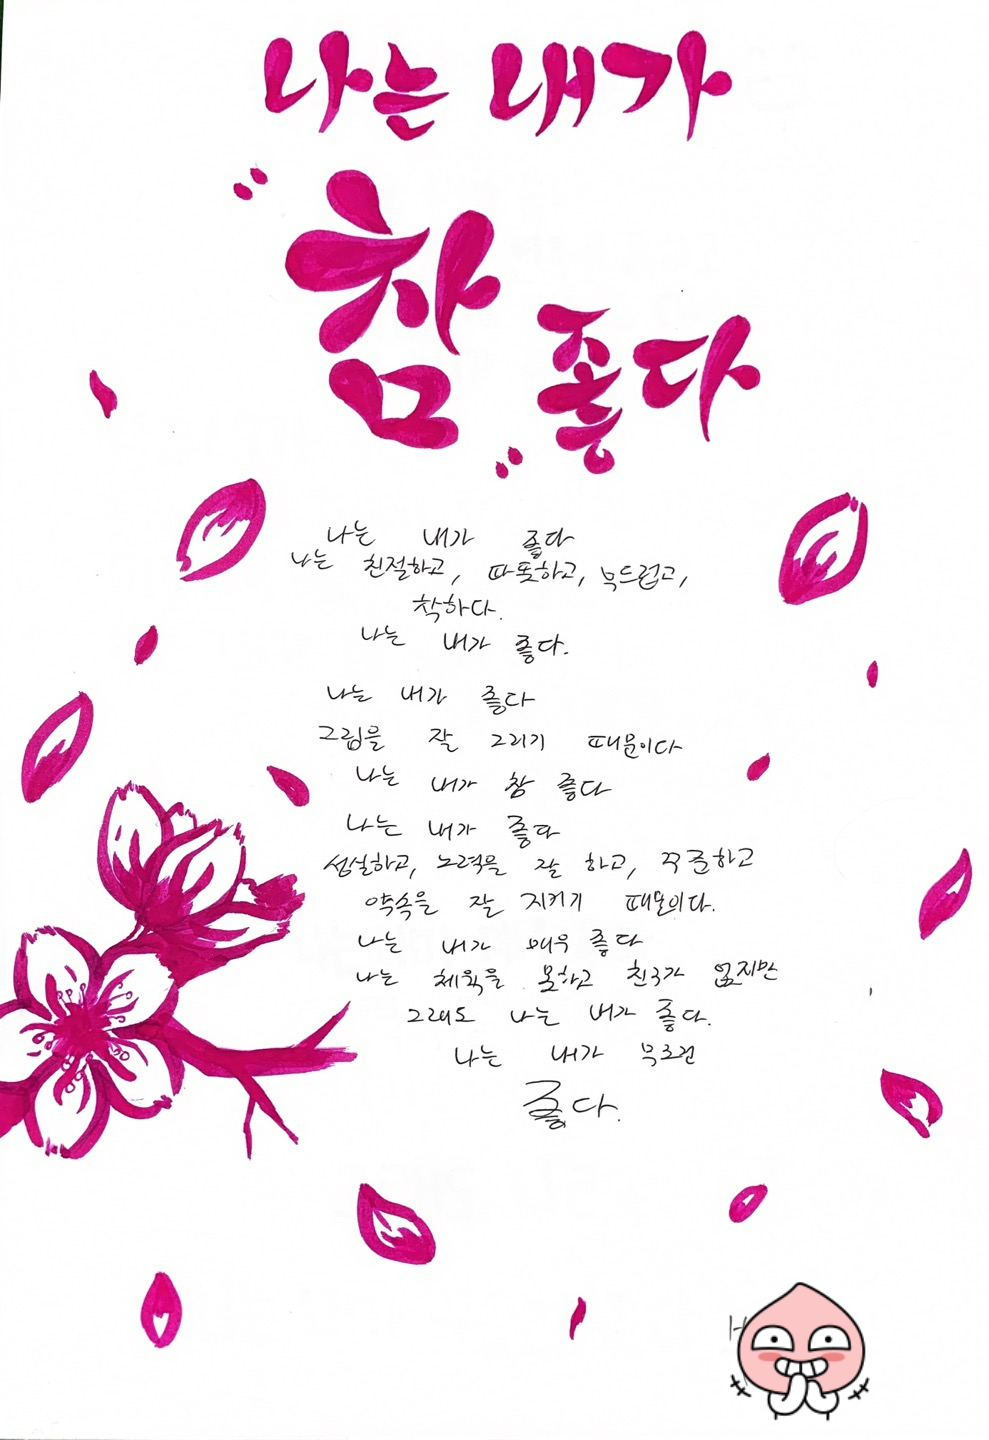 나는 내가
"참" 좋다
나는 내가 좋다
나는 친절하고, 따뜻하고, 부드럽고,
착하다.
나는 내가 좋다.
나는 내가 좋다
그림을 잘 그리기 때문이다
나는 내가 참 좋다
나는 내가 좋다
성실하고, 노력을 잘 하고, 꾸준하고
약속을 잘 지키기 때문이다.
나는 내가 매우 좋다
나는 체육을 못하고 친구가 없지만
그래도 나는 내가 좋다.
나는 내가 무조건
좋다.